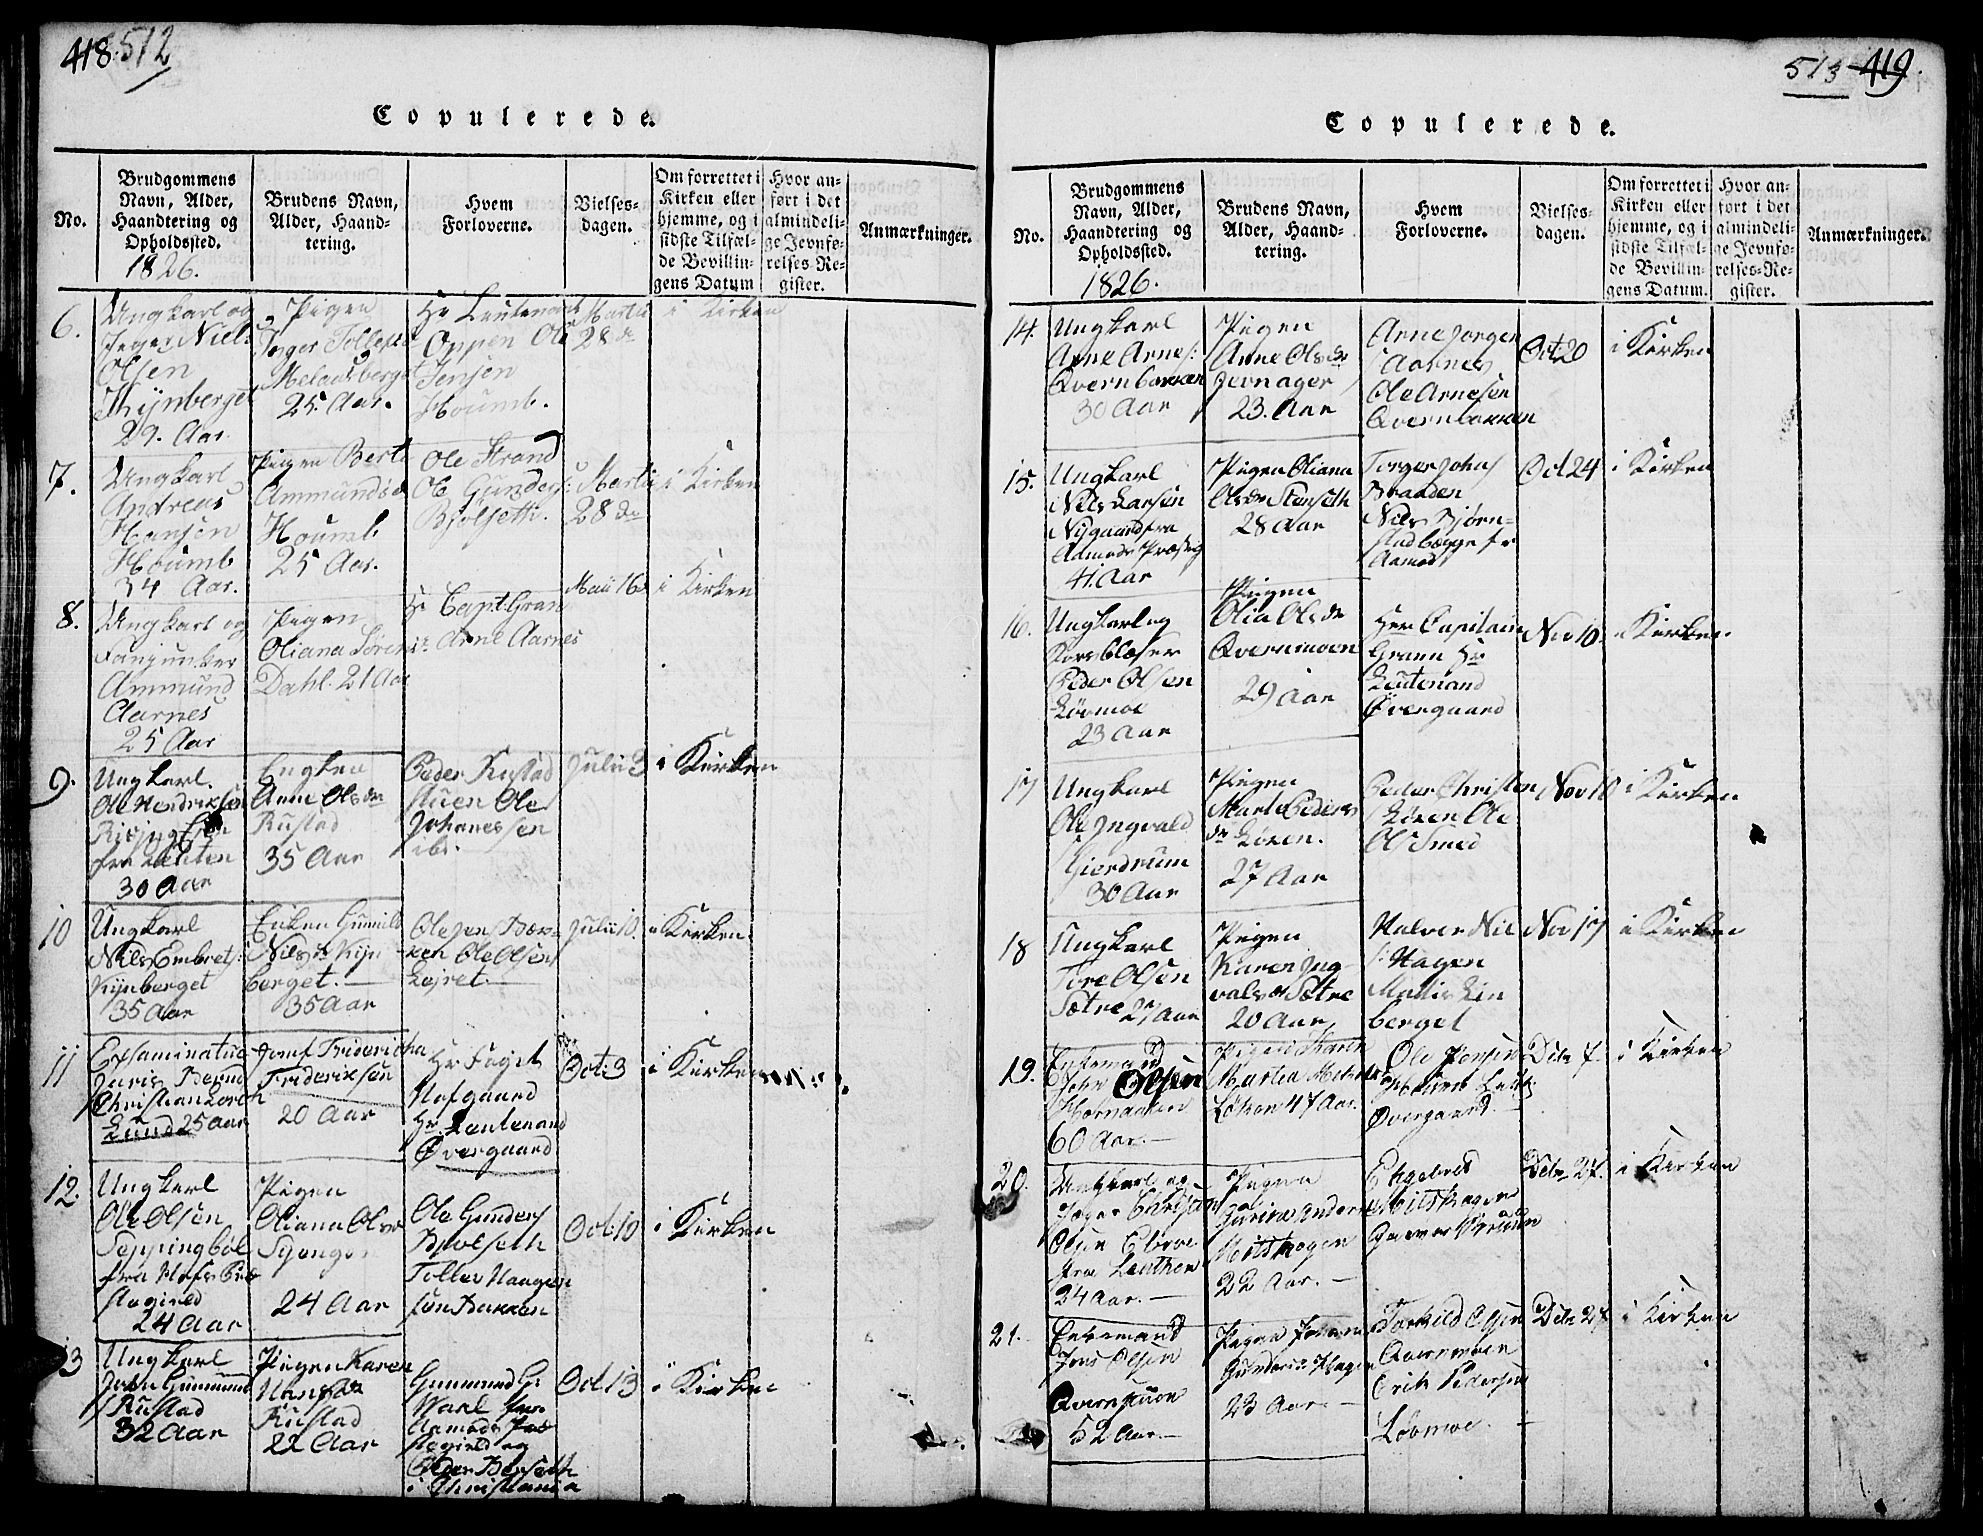 418. 512
Copulerede.
No.
Brudgommens
Navn, Alder,
Haandtering og
Opholdssted.
1826.
Brudens Navn,
Alder, Haand-
tering.
Hvem
Forloverne.
Vielses-
dagen.
Om forrettet i
Kirken eller
hjemme, og i
sidste Tilfæl-
de Bevillin-
gens Datum
Hvor an-
ført i det
almindeli-
ge Jevnfø-
relses-Re-
gister.
Anmærkninger.
6.
Ungkarl og
Jeger Niels
Olsen
29. Aar.
Pigen
25. Aar.
Hr Leutenant
Oppen Ole
Jensen
Houmb.
Martii
28 de
i Kirken
7.
Ungkarl
Andreas
Hansen
Houmb
34 Aar.
Pigen Berte
Ammundsd
Houmb
25 Aar.
Ole Strand
Ole Gunders:
Martii
28 de
i Kirken
8.
Ungkarl og
Fanjunker
Ammund
Aarnes
25 Aar
Pigen
Oliana Søren
Dahl. 21 Aar
Hr Capt: Gran
Arne Aarnes
Maii 16
i Kirken
9.
Ungkarl.
Ole Hendriksen
30 Aar
Enken
Anne Olsdr
Rustad
35 Aar
Peder Rustad
stuen Ole
Johanessen
ibi.
Julii 3
i Kirken
10
Ungkarl
Nils Embrets:
Kynberget
35 Aar
Enken Gunnild
Nilsdr Kyn-
berget.
35 Aar
Ole Olsen
Julii 10.
i Kirken.
11
Exsaminatus
Juris Bernd
Christian Lorch
Lund 25 Aar
Jomf Fridericha
Frideriksen
20 Aar
Hr Foget
Nofgaard
Hr. Leutenand
Øvergaard
Oct: 3
i Kirken
12.
Ungkarl
Ole Olsen
Seppingbøl
fra Hofs Præ
stegield
24 Aar
Pigen
Oliana Olsdr
24 Aar
Ole Gunders
Bjølseth
Tollev Haagen
søn Bakken
Oct: 10
i Kirken
13
Ungkarl
John Gunnmunds
Rustad
32 Aar
Pigen Karen
Hansdr
Rustad
22 Aar
Aamods Præ
stegield og
Peder Berseth
i Christiania
Oct. 13
i Kirken
513 419.
Copulerede.
No.
Brudgommens
Navn, Alder,
Haandtering og
Opholdssted.
1826.
Brudens Navn,
Alder, Haand-
tering.
Hvem
Forloverne.
Vielses-
dagen.
Om forrettet i
Kirken eller
hjemme, og i
sidste Tilfæl-
de Bevillin-
gens Datum.
Hvor an-
ført i det
almindeli-
ge Jevnfø-
relses-Re-
gister.
Anmærkninger.
14.
Ungkarl
Arne Arnes:
Qvernbakken
30 Aar
Pigen
Anne Olsdr
Jevnager
23. Aar
Arne Jorgen
Aasnes
Ole Arnesen
Qvernbakken
Oct: 20
i Kirken
15.
Ungkarl
Nils Larsen
Nygaard fra
Aamods Præstg
41. Aar
Pigen Oliana
Olsdr Stenseth
28 Aar
Torger Johns
Braaden
Nils Bjørn-
stad begge fr
Aamod
Oct 24
i Kirken
16.
Ungkarl og
Peder Olsen
Løvmoe
23 Aar
Pigen
Olia Olsdr
Qvernmoen
29 Aar
Herr Capitain
Grann Hr
Leutenand
Øvergaard
Nov 10.
i Kirken
17
Ungkarl
Ole Ingvald
Gierdrum
30 Aar
Pigen
Marte Peders
dr Løken.
27 Aar
Peder Christen
Løken Ole
Ols Smed
Nov 10
i Kirken
18
Ungkarl
Tore Olsen
Sætre 27 Aar
Pigen
Karen Ing
valsdr Sætre
20 Aar
Halvor Nil
s: Hagen
berget
Nov 17
i Kirken
19.
Enkemand
John Olsen
60 Aar.
Løken 47 Aar.
Ole Jensen
Øvergaard
Dcbr 7.
i Kirken
20.
Ungkarl og
Jeger Christian
Olsen
fra Leuthen
24 Aar.
Pigen
Moitskogen
22 Aar.
Engebret
Moitskogen
Dcbr 27.
i Kirken
21.
Enkemand
Jens Olsen
Qvernstuen
52 Aar.
Pigen
23 Aar.
Torkild Olsen
Qvernmoen
Erik Pedersen
Løvmoe.
Dcbr 27
i Kirken